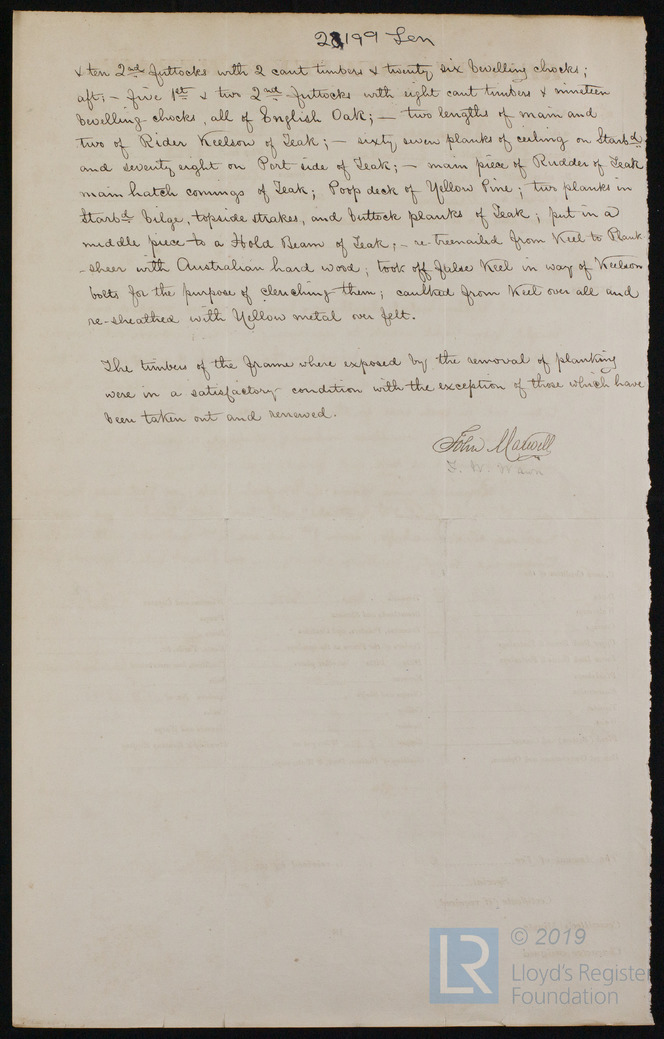 28199 Len
& ten 2nd Futtocks with 2 cant timbers & twenty six bevelling chocks;
aft; – five 1st & two 2nd Futtocks with eight cant timbers & nineteen
bevelling chocks, all of English Oak; — two lengths of main and
two of Rider Keelson of Teak; – sixty seven planks of ceiling on Starbd
and seventy eight on Port side of Teak; – main piece of Rudder of Teak
main hatch comings of Teak; Poop deck of Yellow Pine; two planks in
Starbd bilge, topside strakes, and buttock planks of Teak; put in a
middle piece to a Hold Beam of Teak; – re-treenailed from Keel to Plank
-sheer with Australian hard wood; took off false Keel in way of Keelson
bolts for the purpose of clenching them; caulked from Keel over all and
re-sheathed with Yellow metal over felt.
The timbers of the frame where exposed by the removal of planking
were in a satisfactory condition with the exception of those which have
been taken out and renewed.
John Maxwell
© 2019
LR
Lloyd's Register
Foundation